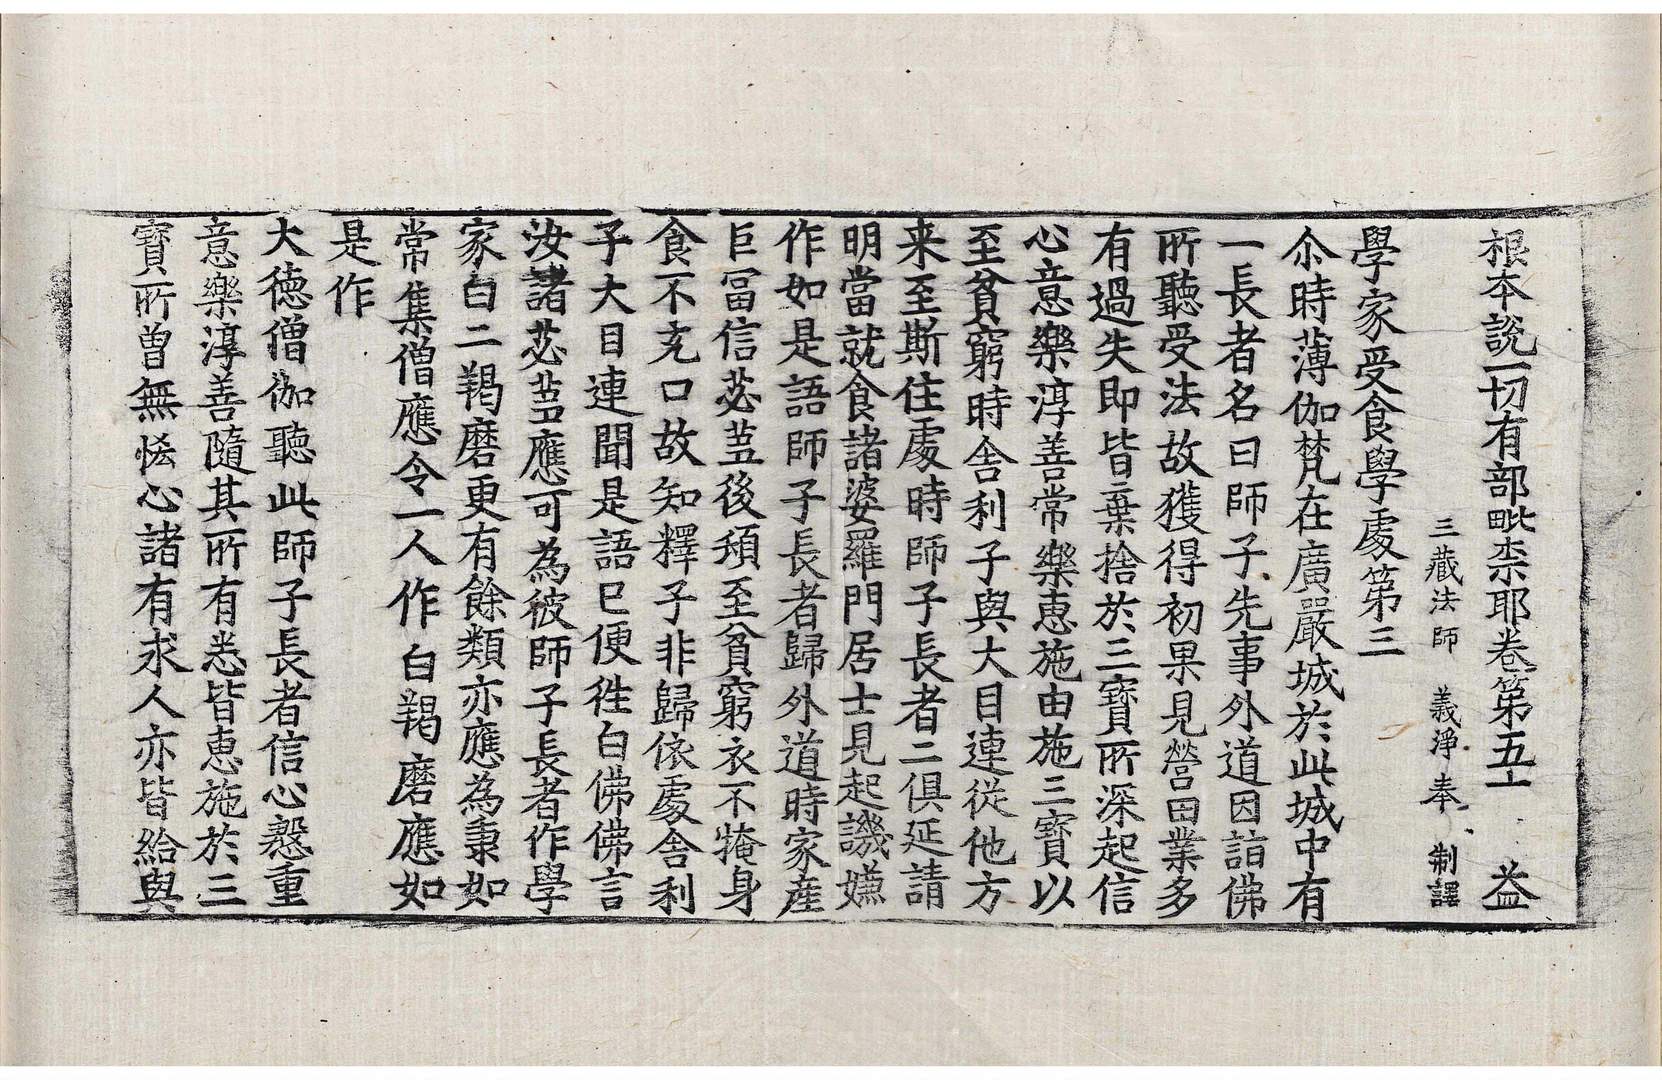 根本說一切有部毗柰耶卷第五十 益
三藏法師 義淨奉 制譯
學家受食學學處第三
尒時薄伽梵在廣嚴城於此城中有
一長者名曰師子先事外道因詣佛
所聽受法故獲得初果見營田業多
有過失即皆棄捨於三寶所深起信
心意樂淳善常樂惠施由施三寶以
至貧窮時舍利子與大目連從他方
来至斯住處時師子長者二俱延請
明當就食諸婆羅門居士見起譏嫌
作如是語師子長者歸外道時家産
巨冨信苾蒭後頓至貧窮衣不掩身
食不充口故知釋子非歸依處舍利
子大目連聞是語已便往白佛佛言
汝諸苾蒭應可為彼師子長者作學
家白二羯磨更有餘類亦應為秉如
常集僧應令一人作白羯磨應如
是作
大德僧伽聽此師子長者信心慇重
意樂淳善隨其所有悉皆惠施於三
寶所曾無悋心諸有求人亦皆給與